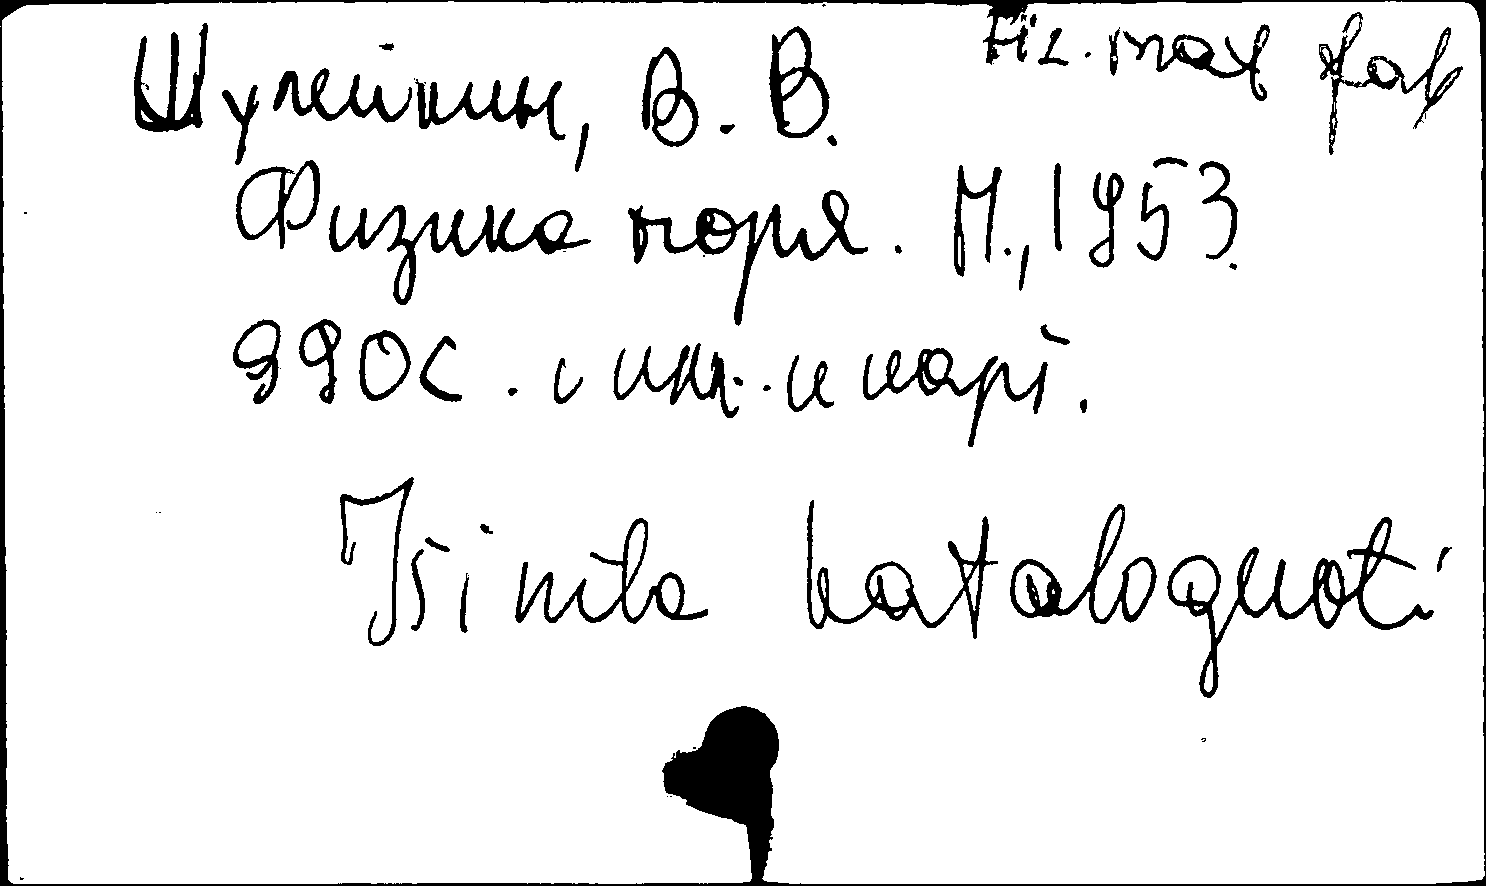 Fiz. mat. fak
Шулейкин, В. В.
Физика моря. М., 1953.
990с. с илл. и карт.
Išimta kataloguoti